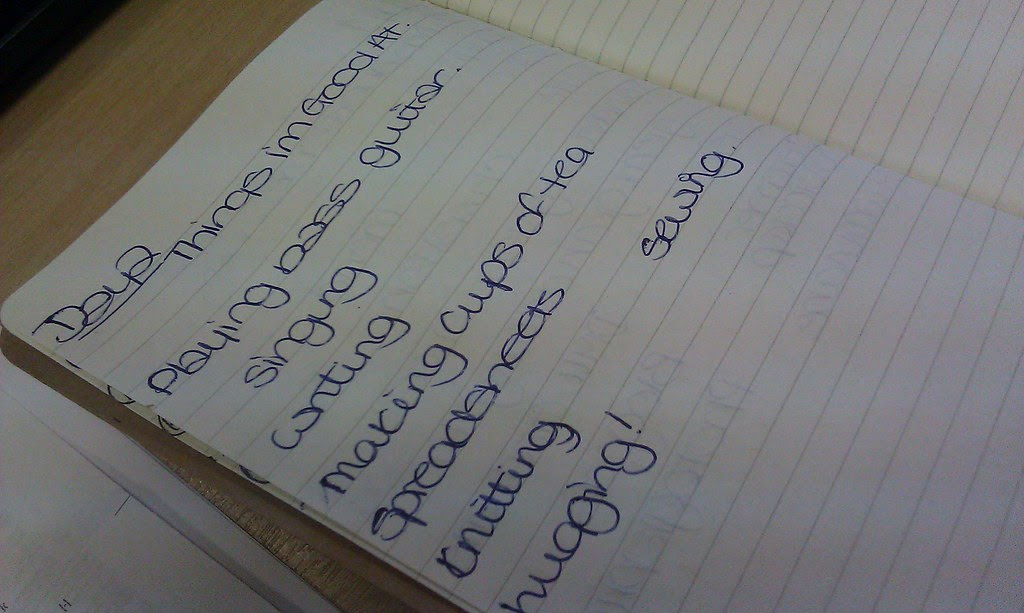 Day 2
Things im Good At.
Playing bass guitar.
singing
writing
making cups of tea
Spreadsheets
sewing.
knitting
hugging!